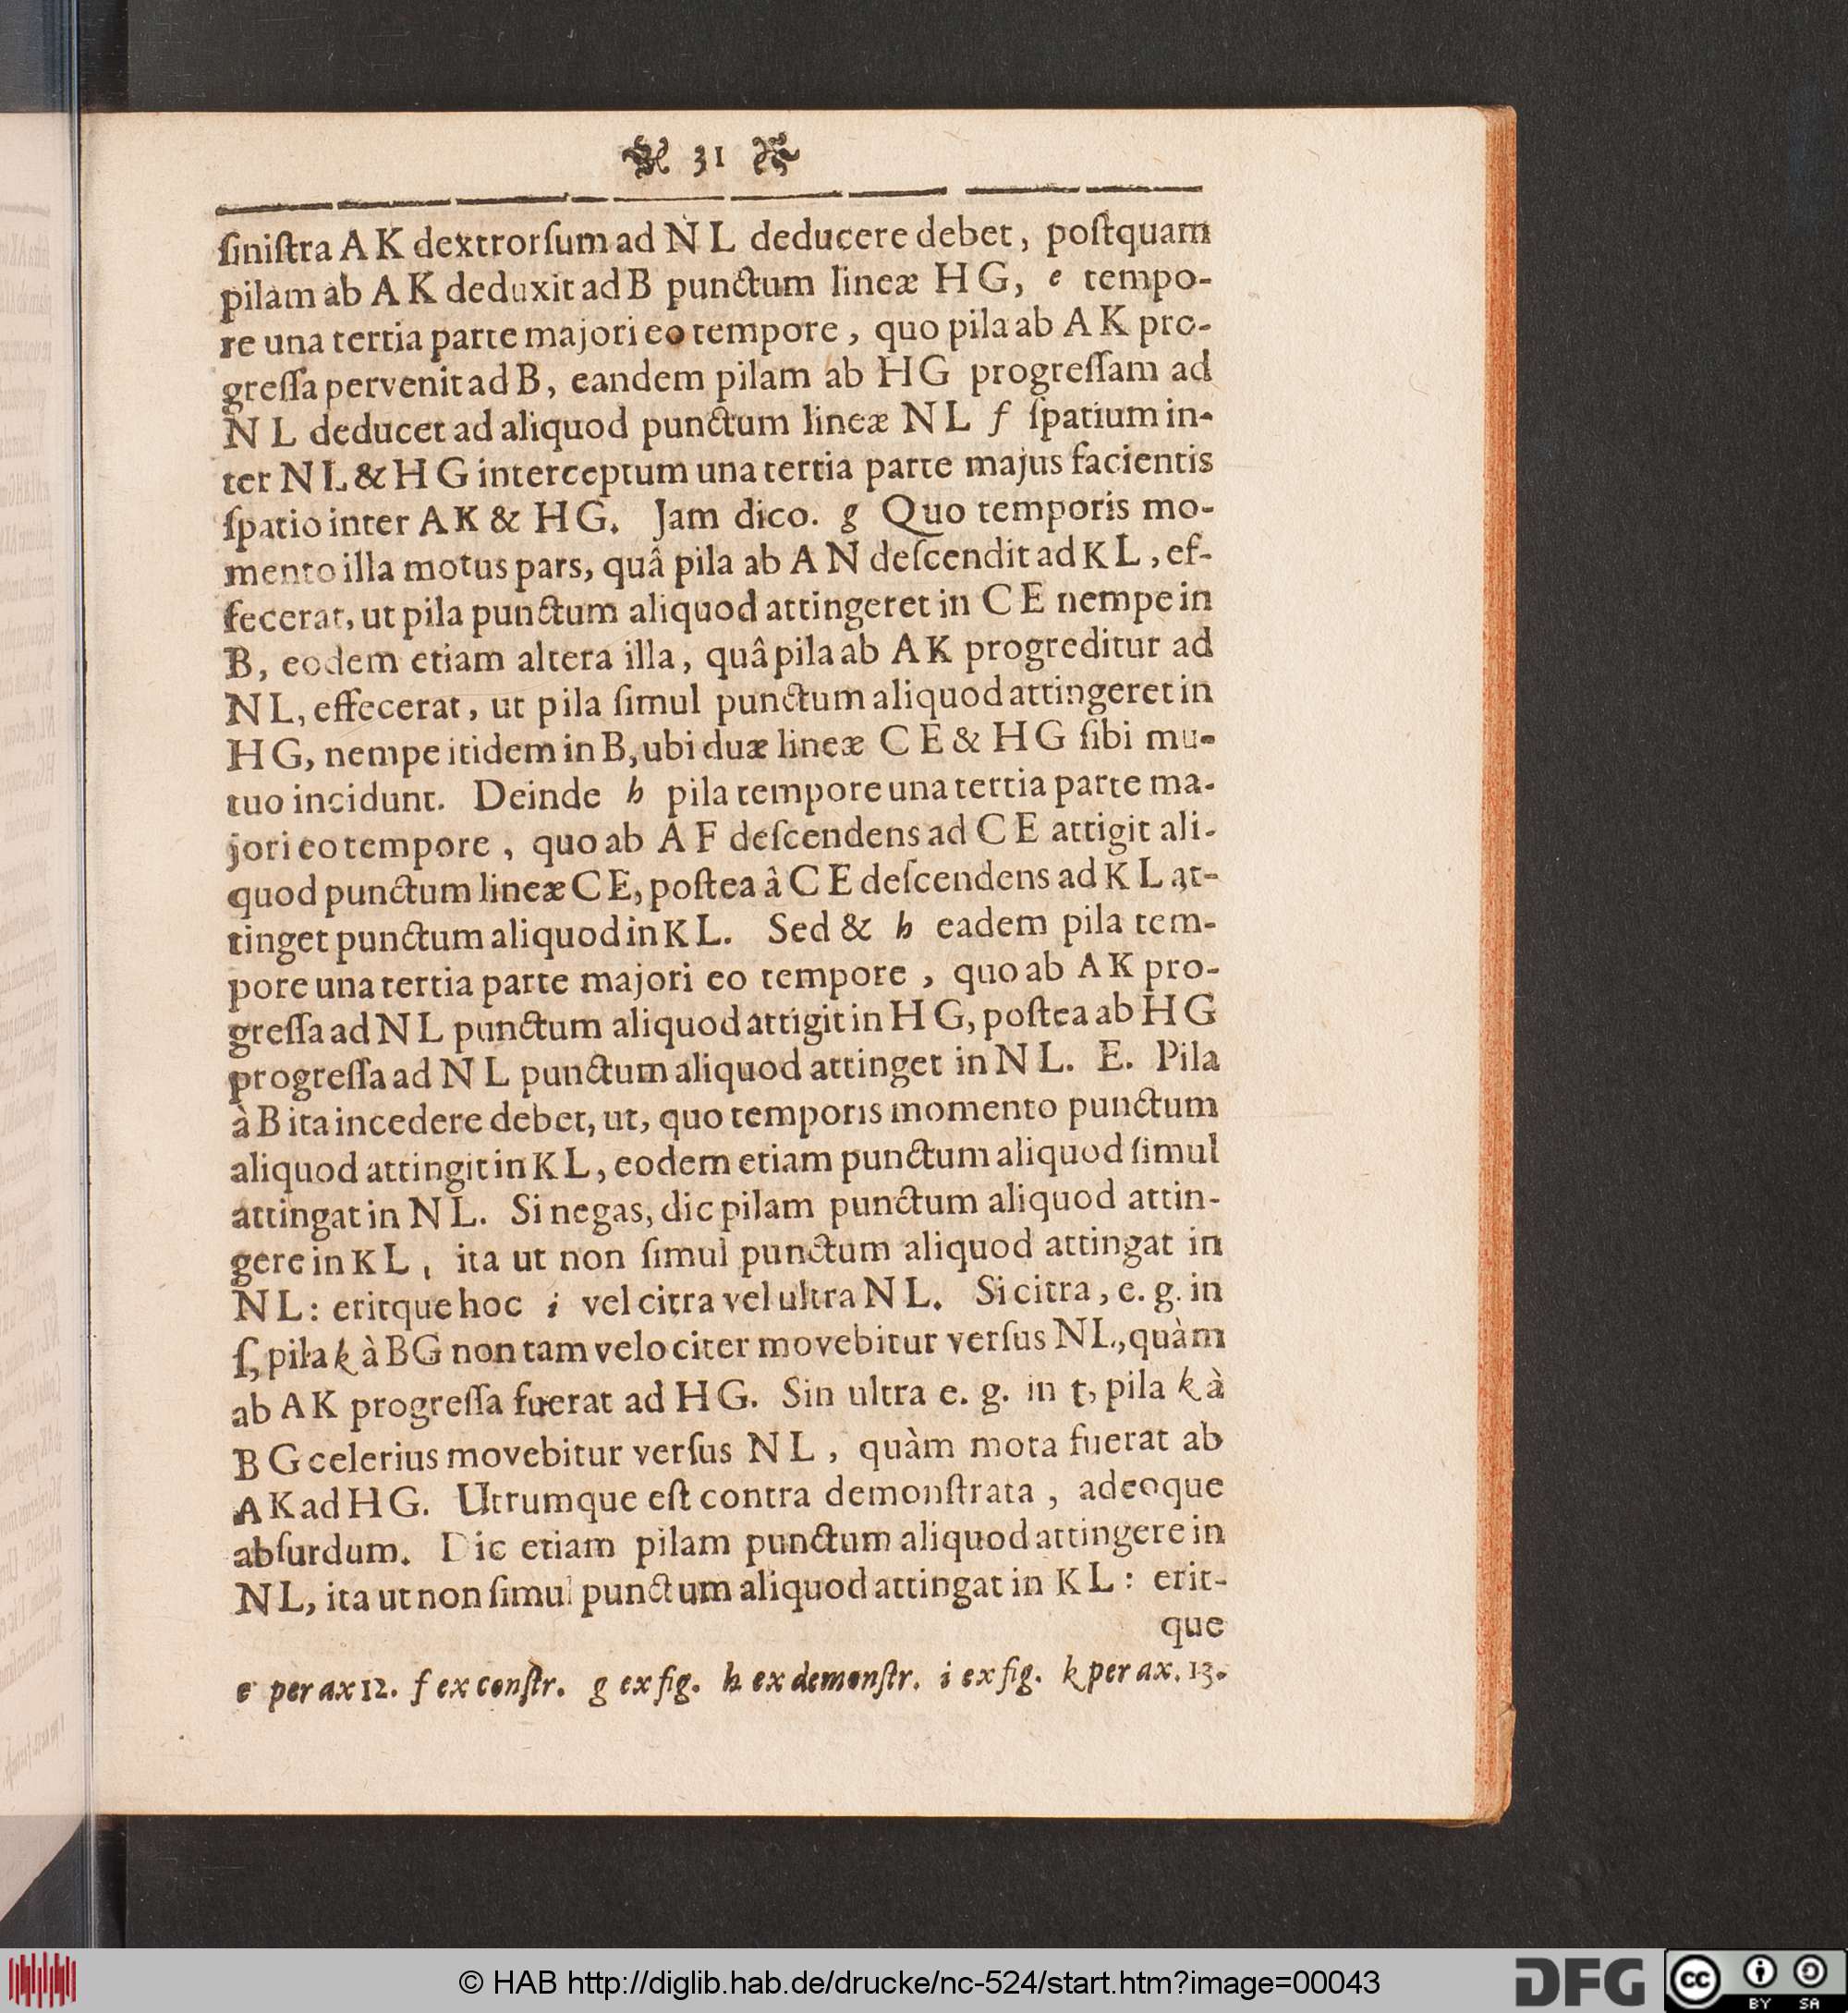 31
ſiniſtra A K dextrorſum ad N L deducere debet, poſtquam
pilam ab A K deduxit ad B punctum lineæ H G, e tempo-
re una tertia parte majori eo tempore, quo pila ab A K pro-
greſſa pervenit ad B, eandem pilam ab H G progreſſam ad
N L deducet ad aliquod punctum lineæ N L f ſpatium in-
ter N L & H G interceptum una tertia parte majus facientis
ſpatio inter A K & H G. Jam dico. g Quo temporis mo-
mento illa motus pars, quâ pila ab A N deſcendit ad K L, ef-
fecerat, ut pila punctum aliquod attingeret in C E nempe in
B, eodem etiam altera illa, quâ pila ab A K progreditur ad
N L, effecerat, ut pila ſimul punctum aliquod attingeret in
H G, nempe itidem in B, ubi duæ lineæ C E & H G ſibi mu-
tuo incidunt. Deinde h pila tempore una tertia parte ma-
jori eo tempore, quo ab A F deſcendens ad C E attigit ali-
quod punctum lineæ C E, poſtea â C E deſcendens ad K L at-
tinget punctum aliquod in K L. Sed & h eadem pila tem-
pore una tertia parte majori eo tempore, quo ab A K pro-
greſſa ad N L punctum aliquod attigit in H G, poſtea ab H G
progreſſa ad N L punctum aliquod attinget in N L. E. Pila
à B ita incedere debet, ut, quo temporis momento punctum
aliquod attingit in K L, eodem etiam punctum aliquod ſimul
attingat in N L. Si negas, dic pilam punctum aliquod attin-
gere in K L, ita ut non ſimul punctum aliquod attingat in
N L: eritque hoc i vel citra vel ultra N L. Si citra, e. g. in
ſ, pila k à B G non tam velociter movebitur verſus N L, quàm
ab A K progreſſa fuerat ad H G. Sin ultra e. g. in t, pila k à
B G celerius movebitur verſus N L, quàm mota fuerat ab
A K ad H G. Utrumque eſt contra demonſtrata, adeoque
abſurdum. Dic etiam pilam punctum aliquod attingere in
N L, ita ut non ſimul punctum aliquod attingat in K L: erit-
que
e per ax 12. f ex conſtr. g ex fig. h ex demonſtr. i ex fig. k per ax. 13.
© HAB http://diglib.hab.de/drucke/nc-524/start.htm?image=00043
DFG
cc BY SA